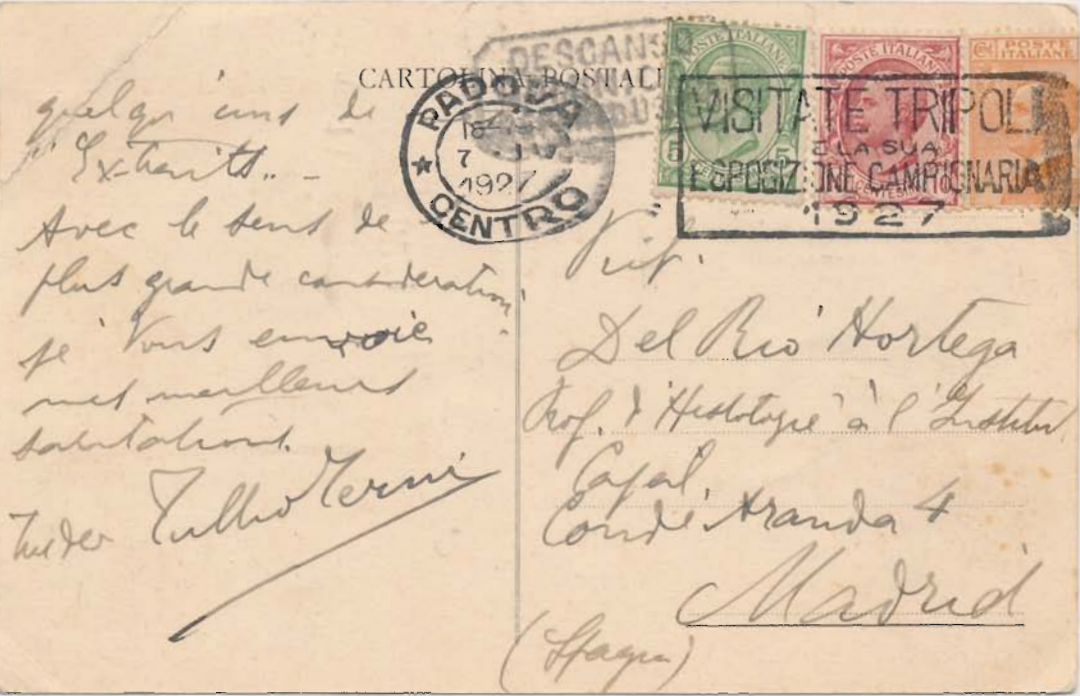 CARTOLINA POSTALE
DESCANSO
PADOVA
18
7
1927
CENTRO
POSTE ITALIANE
5
POSTE ITALIANE
10
POSTE
ITALIANE
VISITATE TRIPOLI
E LA SUA
ESPOSIZIONE CAMPIONARIA
1927
quelqu'uns de
Avec le sens de
plus grande consideration
je Vous envoie
mes meilleurs
salutations.
Tullio Terni
Del Rio Hortega
Prof. d'Histologie à l'Institut
Cajal.
Conde Aranda 4
Madrid